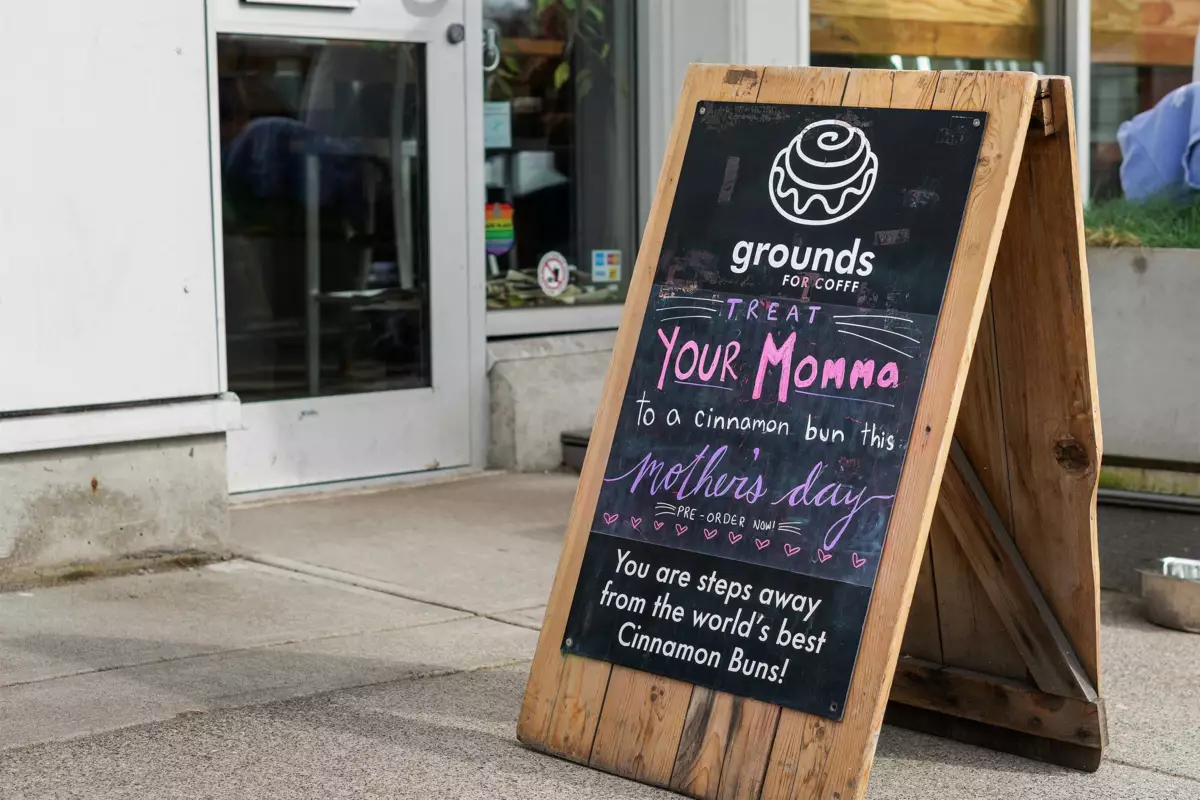 grounds
FOR COFFF
TREAT
YOUR MOMMA
to a cinnamon bun this
mother's day
PRE-ORDER NOW!
You are steps away
from the world's best
Cinnamon Buns!